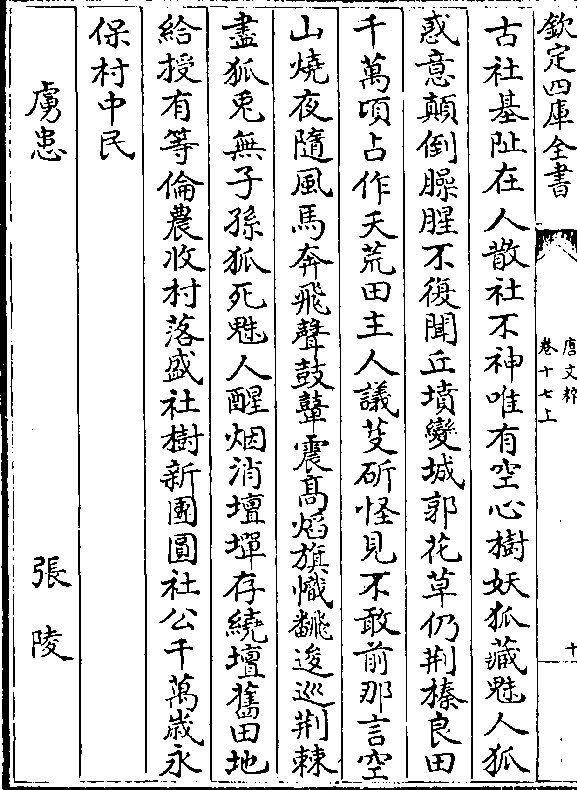 欽定四庫全書
唐文粹
卷十七上
十
古社基阯在人散社不神唯有空心樹妖狐藏魅人狐
惑意顛倒臊腥不復聞丘墳變城郭花草仍荆榛良田
千萬頃占作天荒田主人議芟斫怪見不敢前那言空
山燒夜隨風馬奔飛聲鼓鼙震髙焰旗幟飜逡巡荆棘
盡狐兎無子孫狐死魅人醒烟消壇墠存繞壇舊田地
給授有等倫農收村落盛社樹新團圓社公千萬歳永
保村中民
虜患
張陵